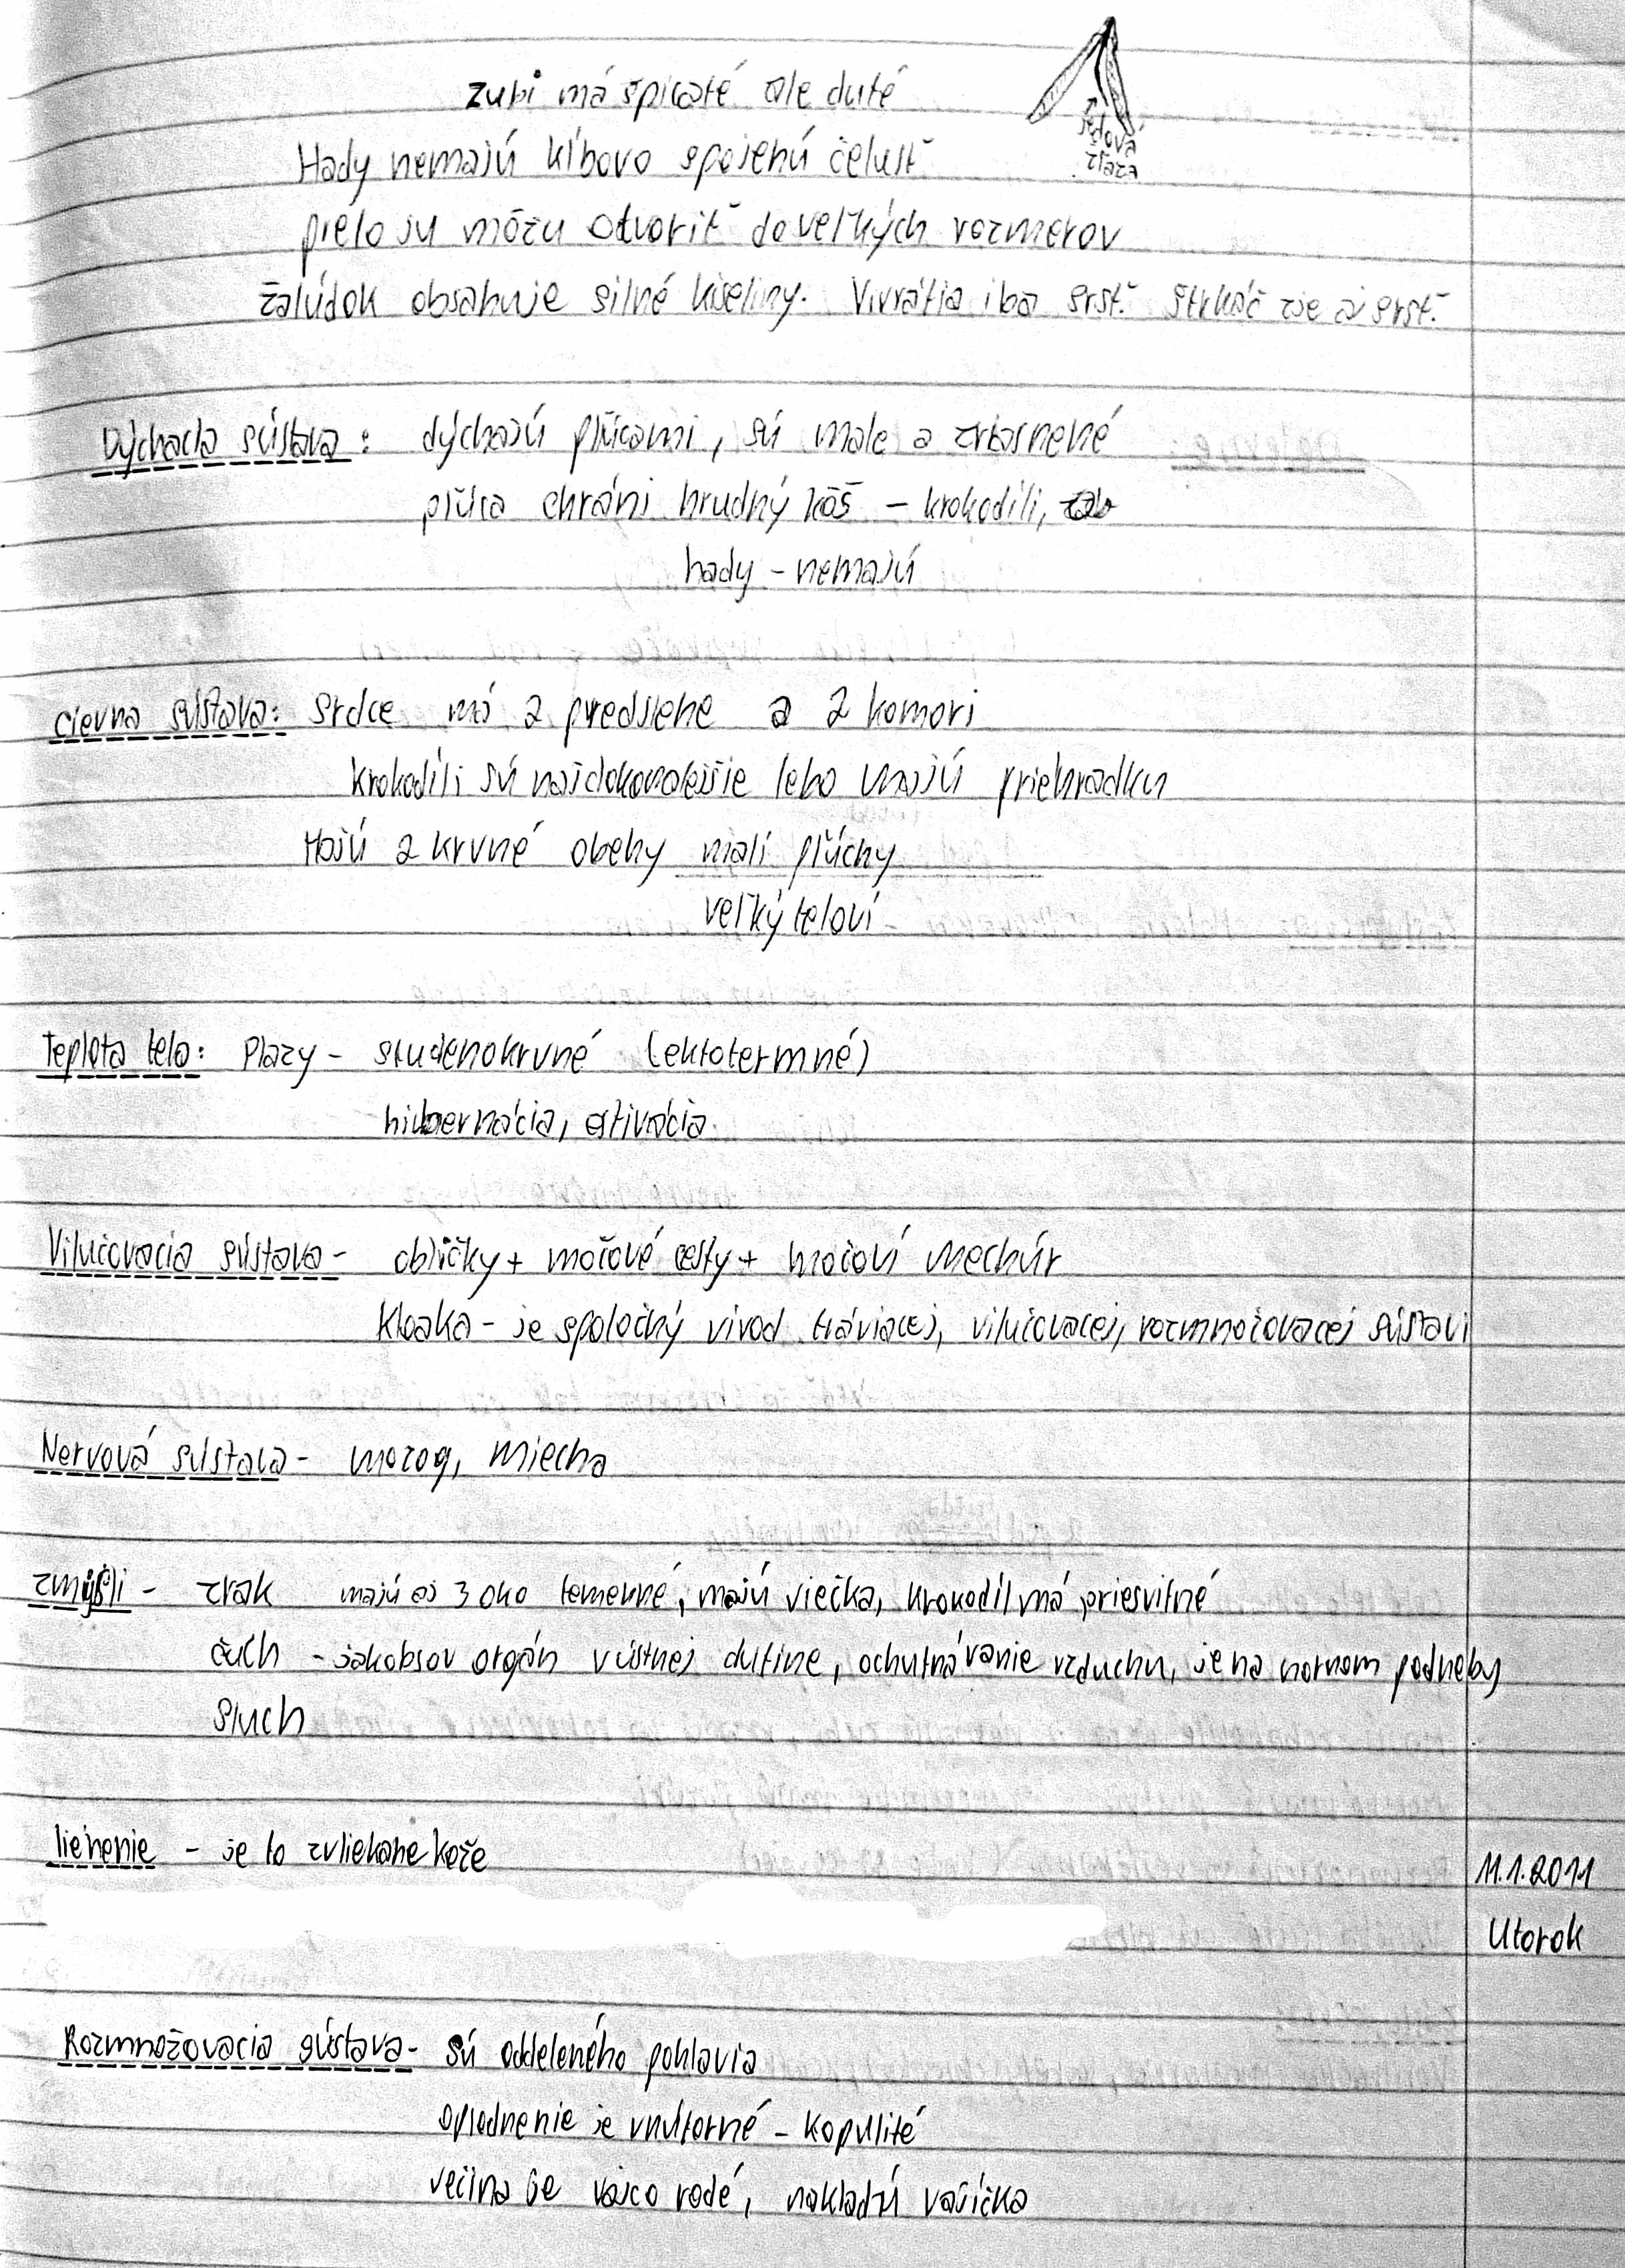 zubi má špicaté ale duté
jedová
žlaza
Hady nemajú kĺbovo spojenú čelusť
preto ju môžu otvoriť do veľkých rozmerov
žalúdok obsahuje silné kiseliny. Vivrátia iba srsť. Strkáč zje aj srsť.
Dýchacia sústava: dýchajú pľúcami, sú male a zriasnené
pľúca chráni hrudný kôš - krokodíli,
hady - nemajú
cievna sústava: srdce má 2 predsiene a 2 komori
Krokodíli sú najdokonalejšie lebo majú priehradku
Majú 2 krvné obehy malí pľúcny
veľký teloví
Teplota tela: Plazy - studenokrvné (ektotermné)
hibernácia, estivácia
Vilučovacia sústava - obličky + močové cesty + močoví mechúr
Kloaka - je spoločný vivod tráviacej, vilučovacej, rozmnožovacej sústavi
Nervová sústava - mozog, miecha
zmysli - zrak majú aj 3 oko temenné, majú viečka, krokodíl má priesvitné
čuch - jakobsov orgán v ústnej dutine, ochutnávanie vzduchu, je na hornom podneby
Sluch
lienenie - je to zvliekane kože
11.1.2011
Utorok
Rozmnožovacia sústava - sú oddeleného pohlavia
oplodnenie je vnútorné - kopulité
večina je vajco rodé, nakladú vajíčka